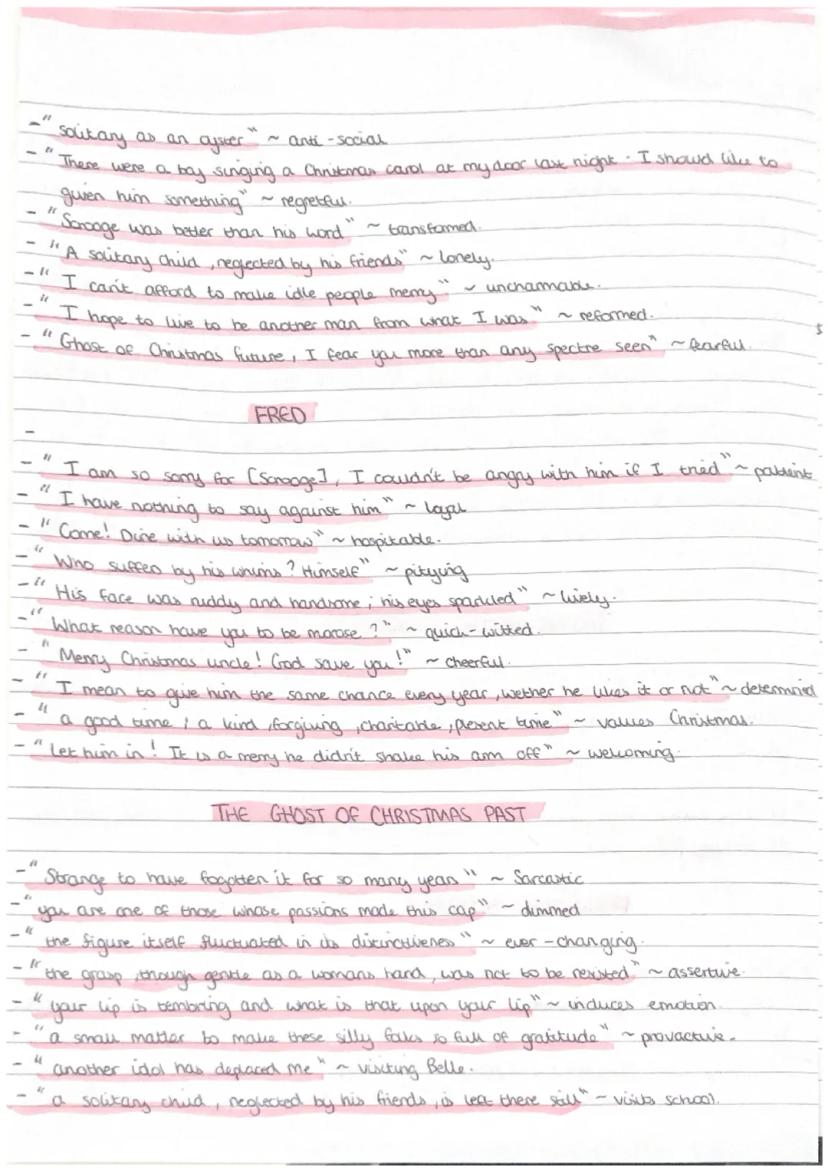 - "solitary as an oyster" ~ anti-social
- "There were a boy singing a Christmas carol at my door last night. I should like to
given him something" ~ regretful.
- "Scrooge was better than his word" ~ transformed.
- "A solitary child, neglected by his friends" ~ lonely.
- "I can't afford to make idle people merry" ~ uncharitable.
- "I hope to live to be another man from what I was" ~ reformed.
- "Ghost of Christmas future, I fear you more than any spectre seen" ~ fearful.
FRED
-
- "I am so sorry for [Scrooge], I couldn't be angry with him if I tried" ~ patient
- "I have nothing to say against him" ~ loyal
- "Come! Dine with us tomorrow" ~ hospitable.
- "Who suffers by his whims? Himself" ~ pitying
- "His face was ruddy and handsome; his eyes sparkled" ~ lively.
- "What reason have you to be morose?" ~ quick-witted.
- "Merry Christmas uncle! God save you!" ~ cheerful.
- "I mean to give him the same chance every year, wether he likes it or not" ~ determined
- "a good time; a kind, forgiving, charitable, plesent time" ~ values Christmas.
- "Let him in! It is a mercy he didn't shake his arm off" ~ welcoming.
THE GHOST OF CHRISTMAS PAST
- "Strange to have fogotten it for so many years" ~ Sarcastic
- "you are one of those whose passions made this cap" ~ dimmed
- "the figure itself fluctuated in its distinctiveness" ~ ever-changing.
- "the grasp, though gentle as a womans hand, was not to be resisted" ~ assertive.
- "your lip is tembring and what is that upon your lip" ~ induces emotion.
- "a small matter to make these silly folks so full of gratitude" ~ provactive.
- "another idol has deplaced me" ~ visiting Belle.
- "a solitary child, neglected by his friends, is left there still" ~ visits school.